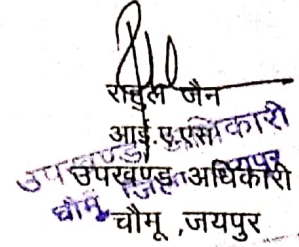 राहुल जैन
आई.ए.एस
उपखण्ड अधिकारी
चौमू ,जयपुर
उपखण्ड अधिकारी
चौमू जयपुर